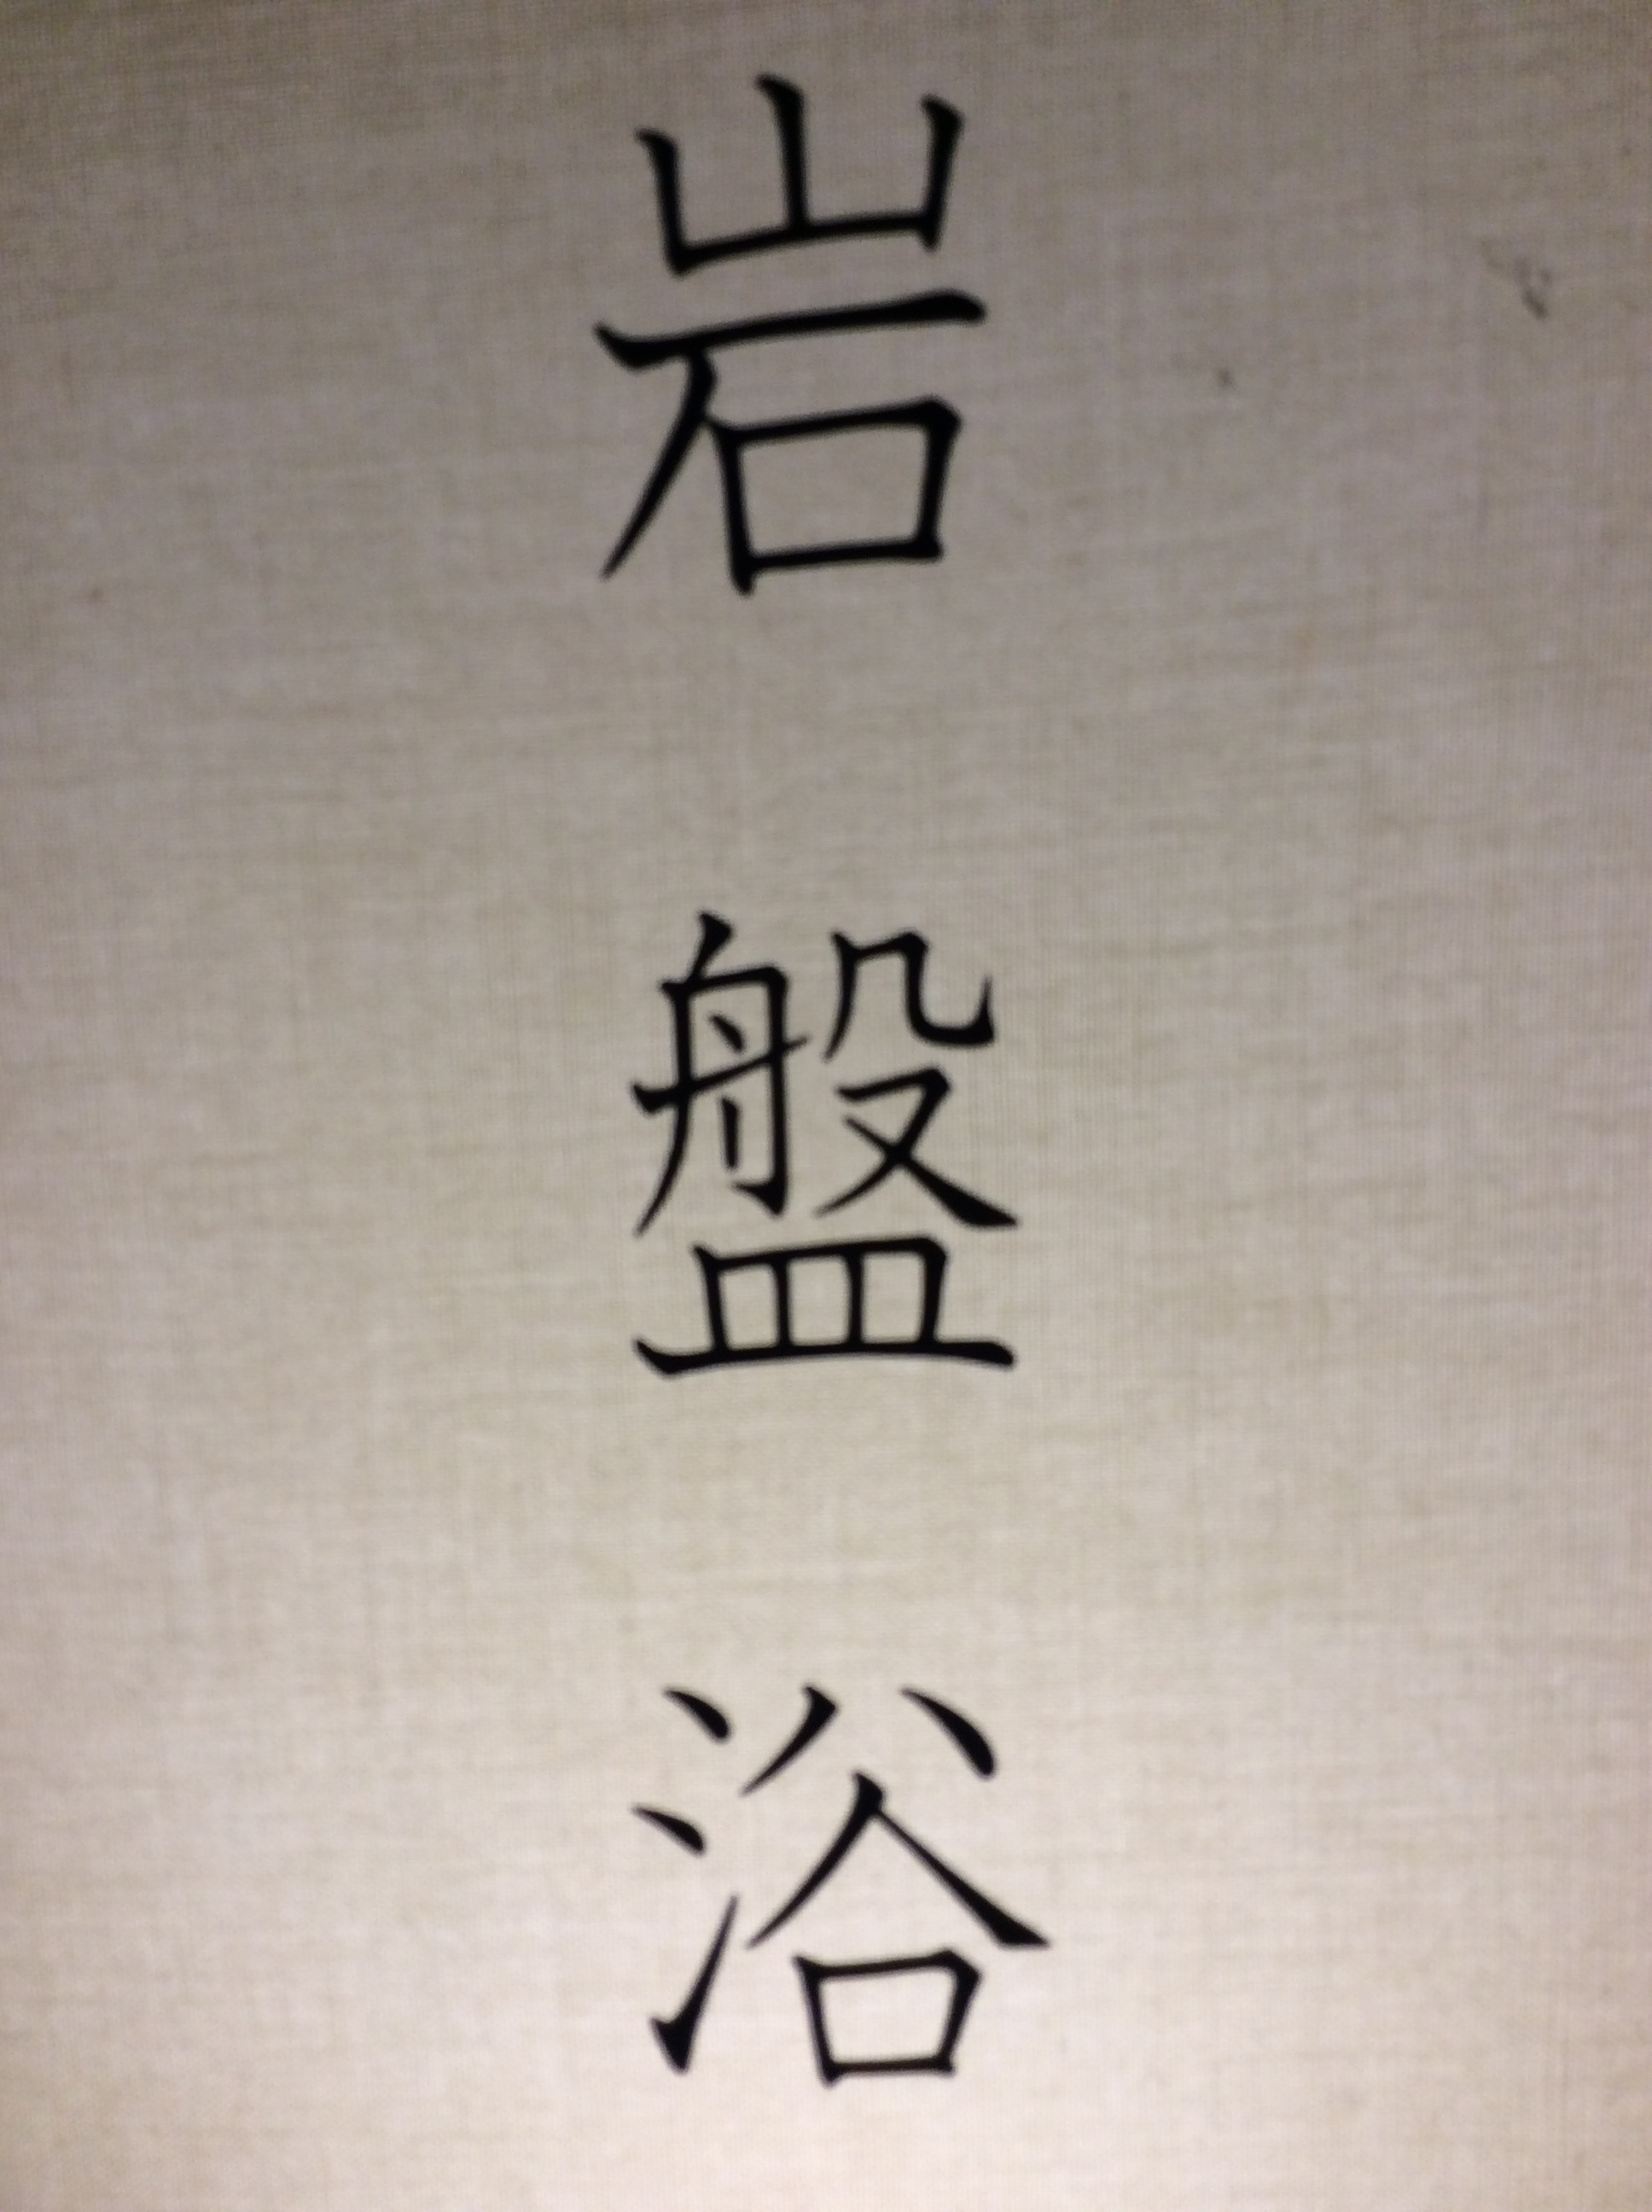 岩盤浴